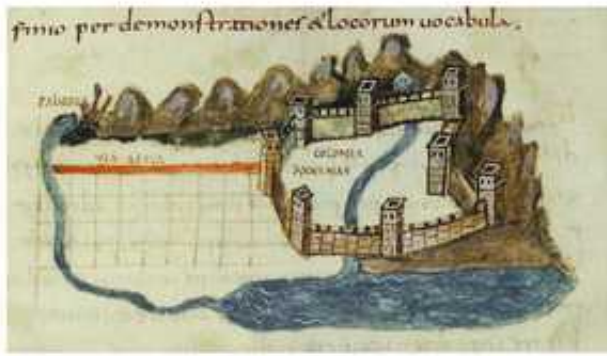 finio per demonstrationes & locorum uocabula.
VIA
COLONIA